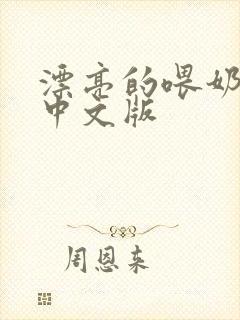 漂亮的喂奶
中文版
周恩来